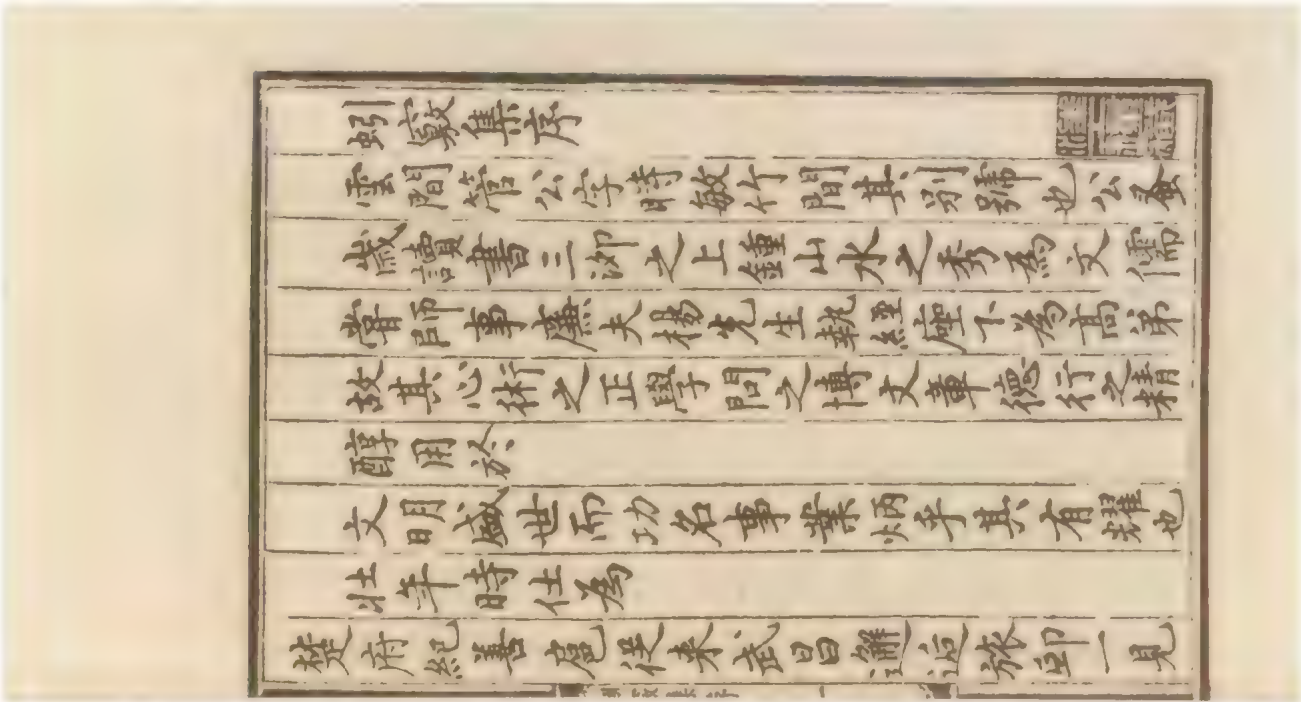 蚓竅集序
雲間管公字時敏竹間其別號也公蚤
歲讀書三泖之上鍾山水之秀為文儒
嘗師事廉夫楊先生執經座下為高弟
故其心術之正學問之博文章德行之精
醇用於
文明盛世而功名事業炳乎其有耀也
壯年時仕為
楚府紀善扈從來武昌邂逅旅邸一見